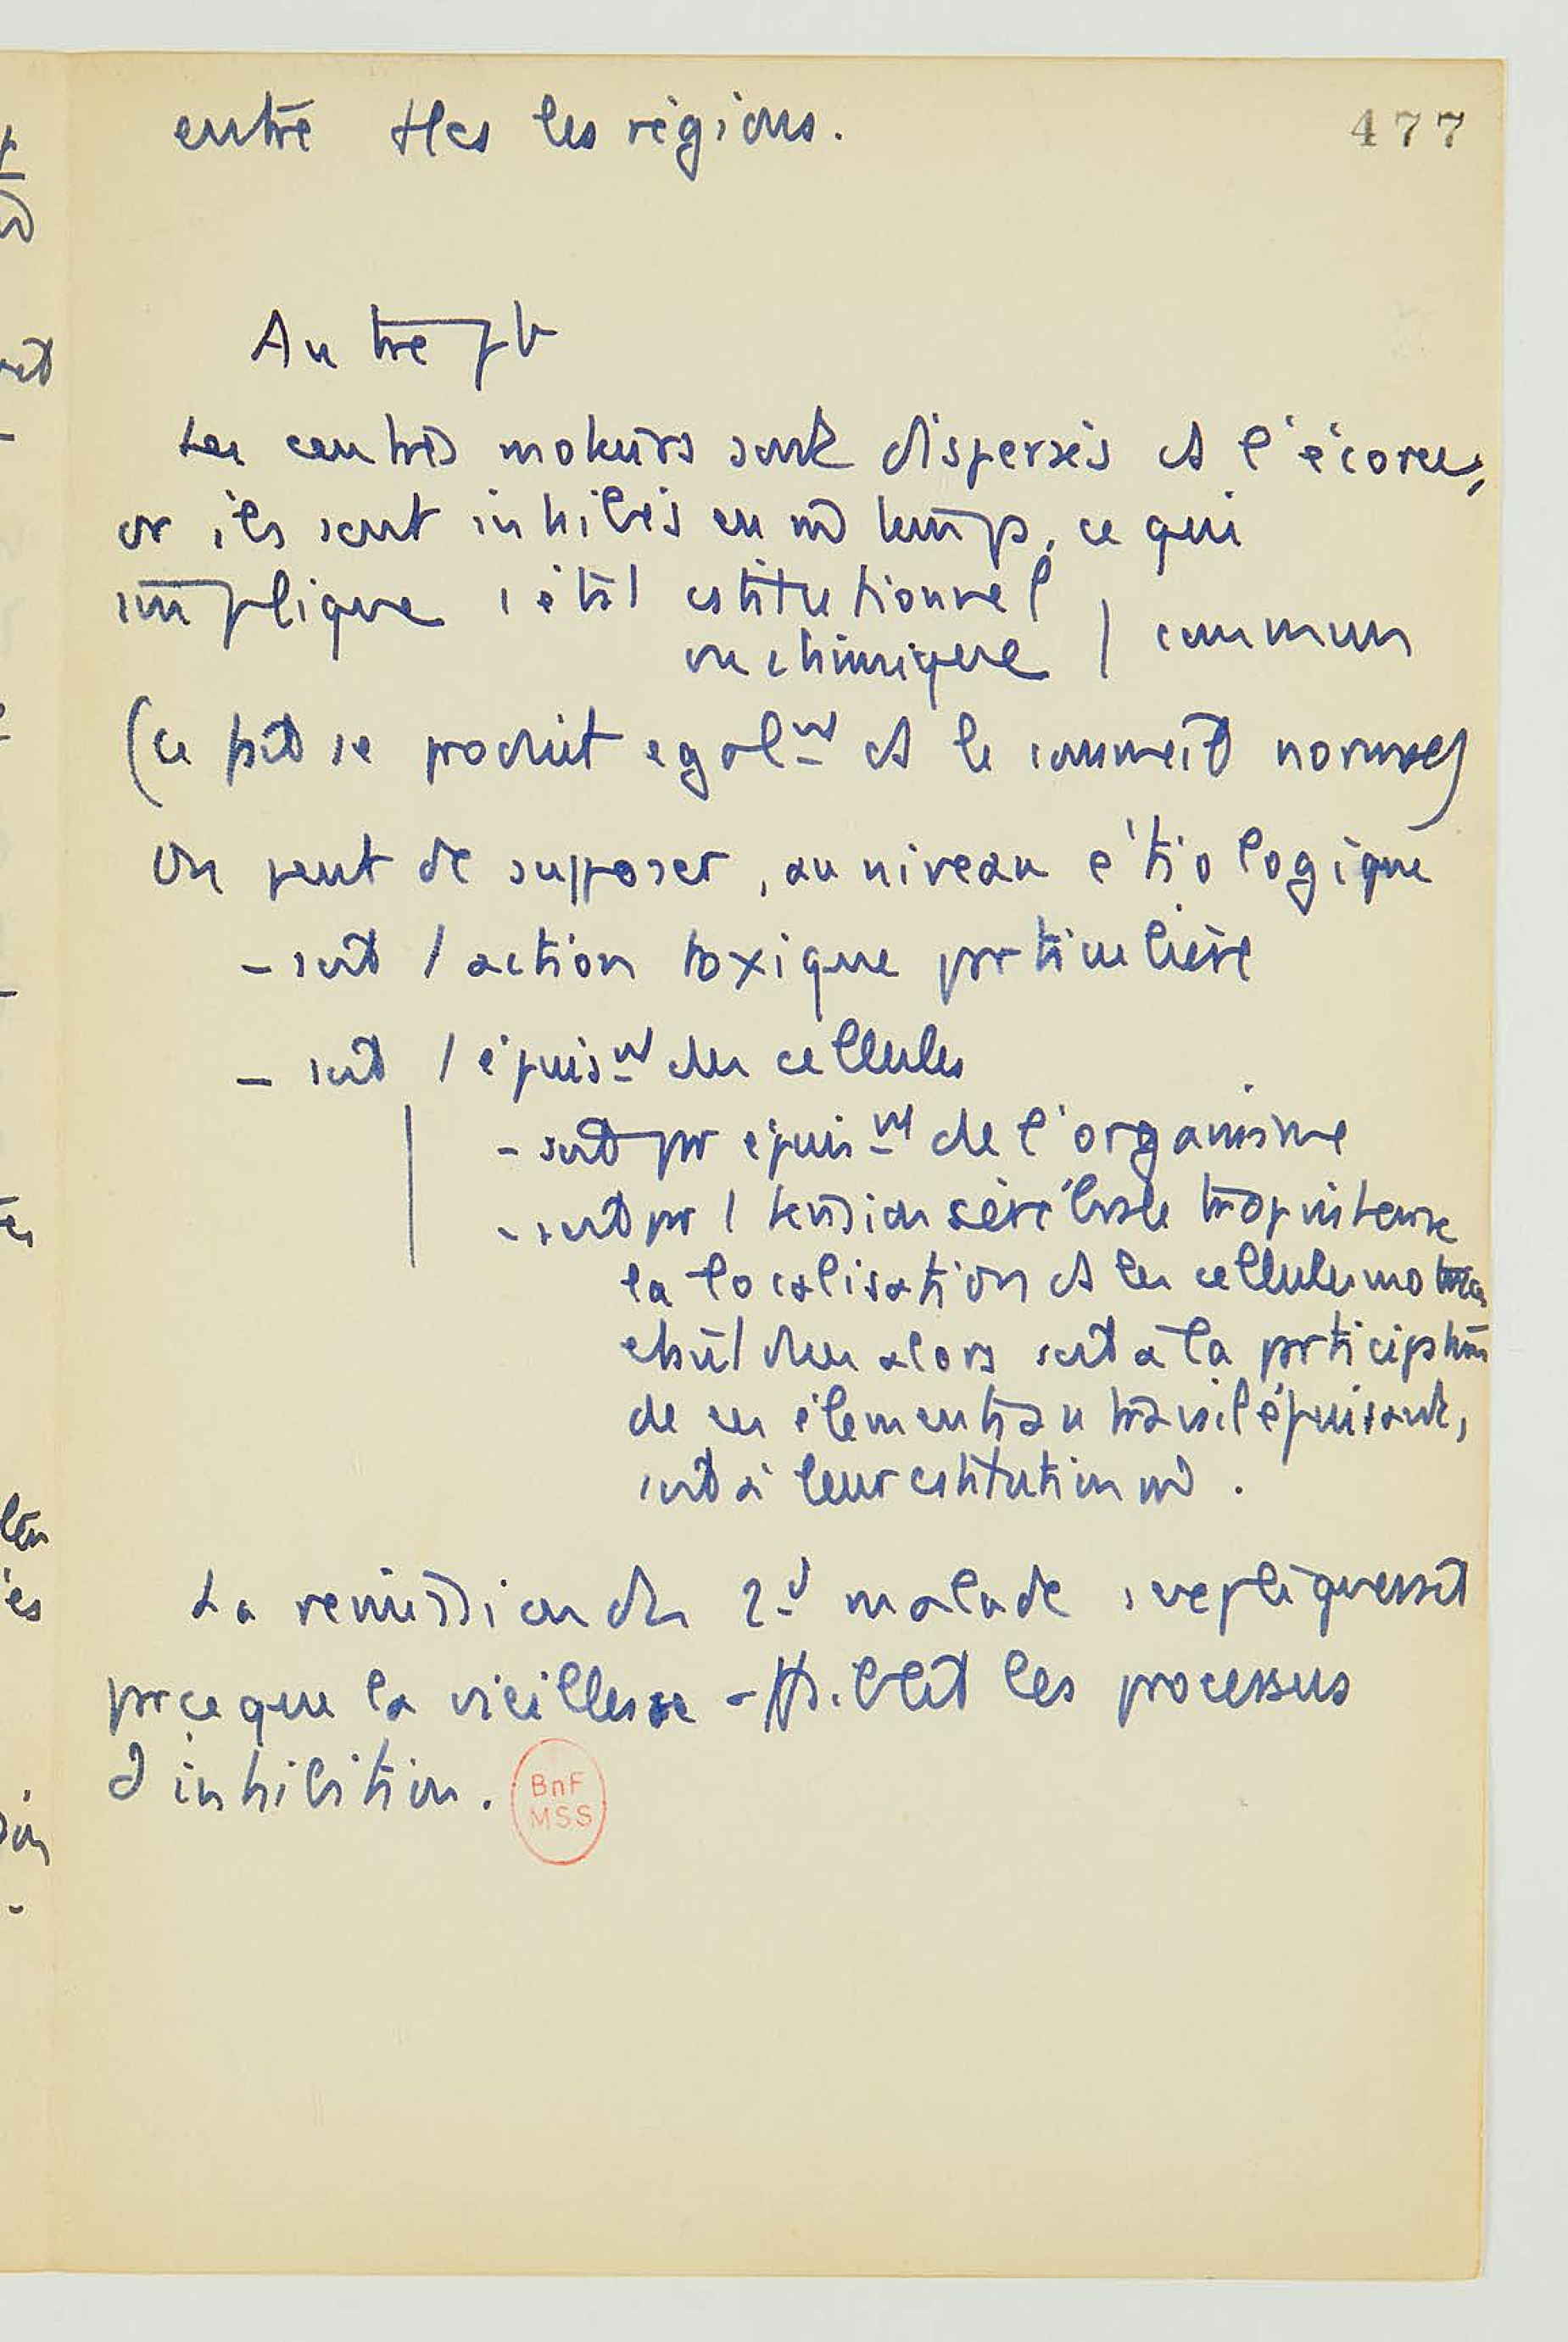 477
entre ttes les régions.
Autre pt
Les centres moteurs sont dispersés ds l'écorce,
or ils sont inhibés en m̂ temps, ce qui
implique 1 état cstitutionnel
ou chimique / commun
(ce fait se produit égalnt ds le sommeil normal)
On peut dc supposer, au niveau étiologique
- soit / action toxique particulière
- soit / épuisnt des cellules
- soit par épuisnt de l'organisme
- soit par / tension cérébrale trop intense
la localisation ds les cellules motrices
étant due alors soit à la participation
de ces éléments au travail épuisant,
soit à leur cstitution m̂.
La rémission du 2d malade s'expliquerait
parce que la vieillesse affaiblit les processus
d'inhibition.
BnF
MSS